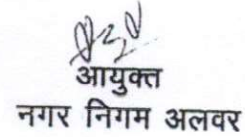 आयुक्त
नगर निगम अलवर